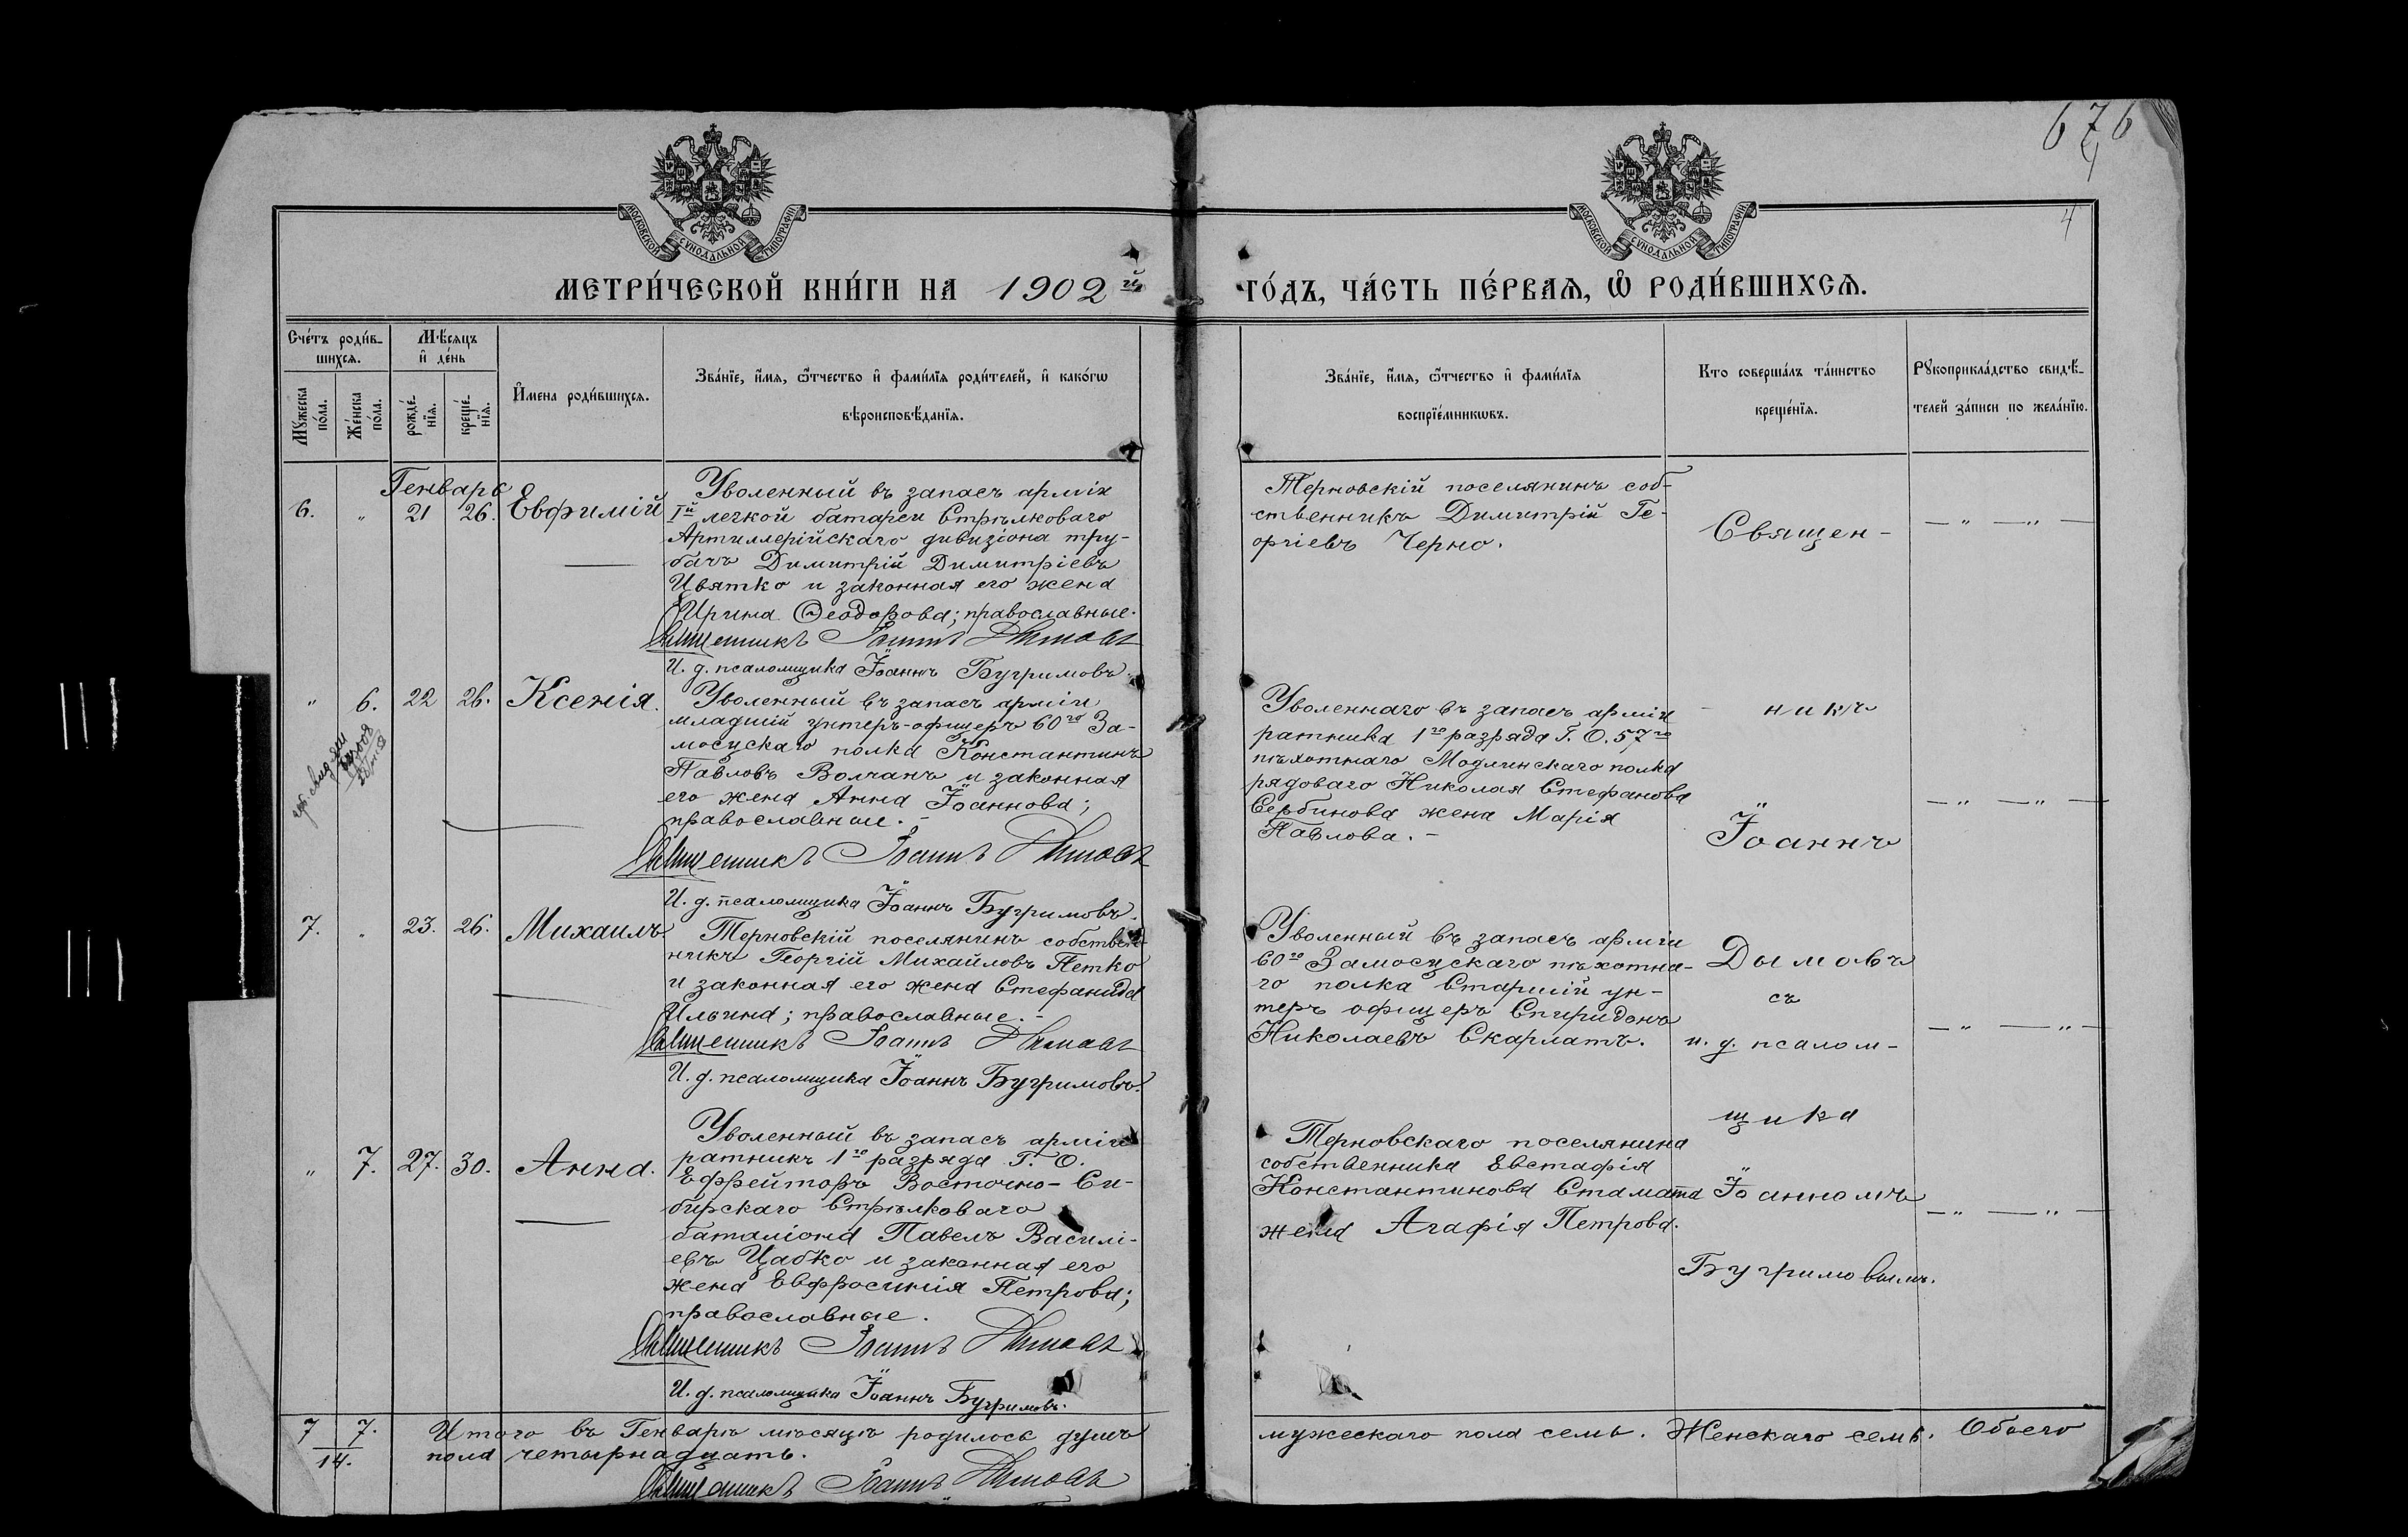 676
4
МОСКОВСКОЙ СѴНОДАЛЬНОЙ ТИПОГРАФІИ
МОСКОВСКОЙ СѴНОДАЛЬНОЙ ТИПОГРАФІИ
МЕТРИ́ЧЕСКОЙ КНИ́ГИ НА 1902й
ГО́ДЪ, ЧА́СТЬ ПЕ́РВАѦ, Ѡ РОДИ́ВШИХСѦ.
Сче́тъ роди́в-
шихсѧ.
Мꙋжеска по́ла.
Же́нска по́ла.
Мѣ́сѧцъ
и де́нь
рожде́-
нїѧ.
креще́-
нїѧ.
И҆мена роди́вшихсѧ.
Зва́нїе, и҆́мѧ, ѻ҆́тчество и҆ фами́лїѧ роди́телей, и҆ како́гѡ
вѣроисповѣ́данїѧ.
Зва́нїе, и҆́мѧ, ѻ҆́тчество и҆ фами́лїѧ
воспрїе́мникѡвъ.
Кто соверша́лъ та́инство
креще́нїѧ.
Рꙋкоприкла́дство свидѣ́-
телей за́писи по жела́нїю.
Генварь
6. " 21 26. Евфимій
Уволенный въ запасъ арміи
Iй легкой батареи Стрѣлковаго
Артиллерійскаго дивизіона тру-
бачъ Димитрій Димитріевъ
Цвятко и законная его жена
Ирина Ѳеодорова; православные.
Священникъ Іоаннъ Дымовъ
И. д. псаломщика Іоаннъ Бугримовъ.
Терновскій поселянинъ соб-
ственникъ Димитрій Ге-
оргіевъ Черно.
Священ-
— " — " —
" 6. 22 26. Ксенія.
Уволенный въ запасъ арміи
младшій унтеръ-офицеръ 60го За-
мосцскаго полка Константинъ
Павловъ Волчанъ и законная
его жена Анна Іоаннова;
православные. -
Священникъ Іоаннъ Дымовъ
И. д. псаломщика Іоаннъ Бугримовъ.
Уволеннаго въ запасъ арміи
ратника 1го разряда Г. О. 57го
пѣхотнаго Модлинскаго полка
рядоваго Николая Стефанова
Сербинова жена Марія
Павлова. -
никъ
Іоаннъ
— " — " —
7. " 23. 26. Михаилъ.
Терновскій поселянинъ собствен-
никъ Георгій Михайловъ Петко
и законная его жена Стефанида
Ильина; православные. -
Священникъ Іоаннъ Дымовъ
И. д. псаломщика Іоаннъ Бугримовъ.
Уволенный въ запасъ арміи
60го Замосцскаго пѣхотна-
го полка Старшій ун-
теръ офицеръ Спиридонъ
Николаевъ Скарлатъ.
Дымовъ
съ
и. д. псалом-
— " — " —
" 7. 27. 30. Анна.
Уволенный въ запасъ арміи
ратникъ 1го разряда Г. О.
Ефрейторъ Восточно-Си-
бирскаго Стрѣлковаго
баталіона Павелъ Василі-
евъ Цабко и законная его
жена Евфросинія Петрова;
православные.
Священникъ Іоаннъ Дымовъ
И. д. псаломщика Іоаннъ Бугримовъ.
Терновскаго поселянина
собственника Евстафія
Константинова Стамата
жена Агафія Петрова.
щика
Іоанномъ
Бугримовымъ.
— " — " —
7 7.
14.
Итого въ Генварѣ мѣсяцѣ родилось душъ
мужескаго пола семь. Женскаго семь. Обоего
пола четырнадцать.
Священникъ Іоаннъ Дымовъ